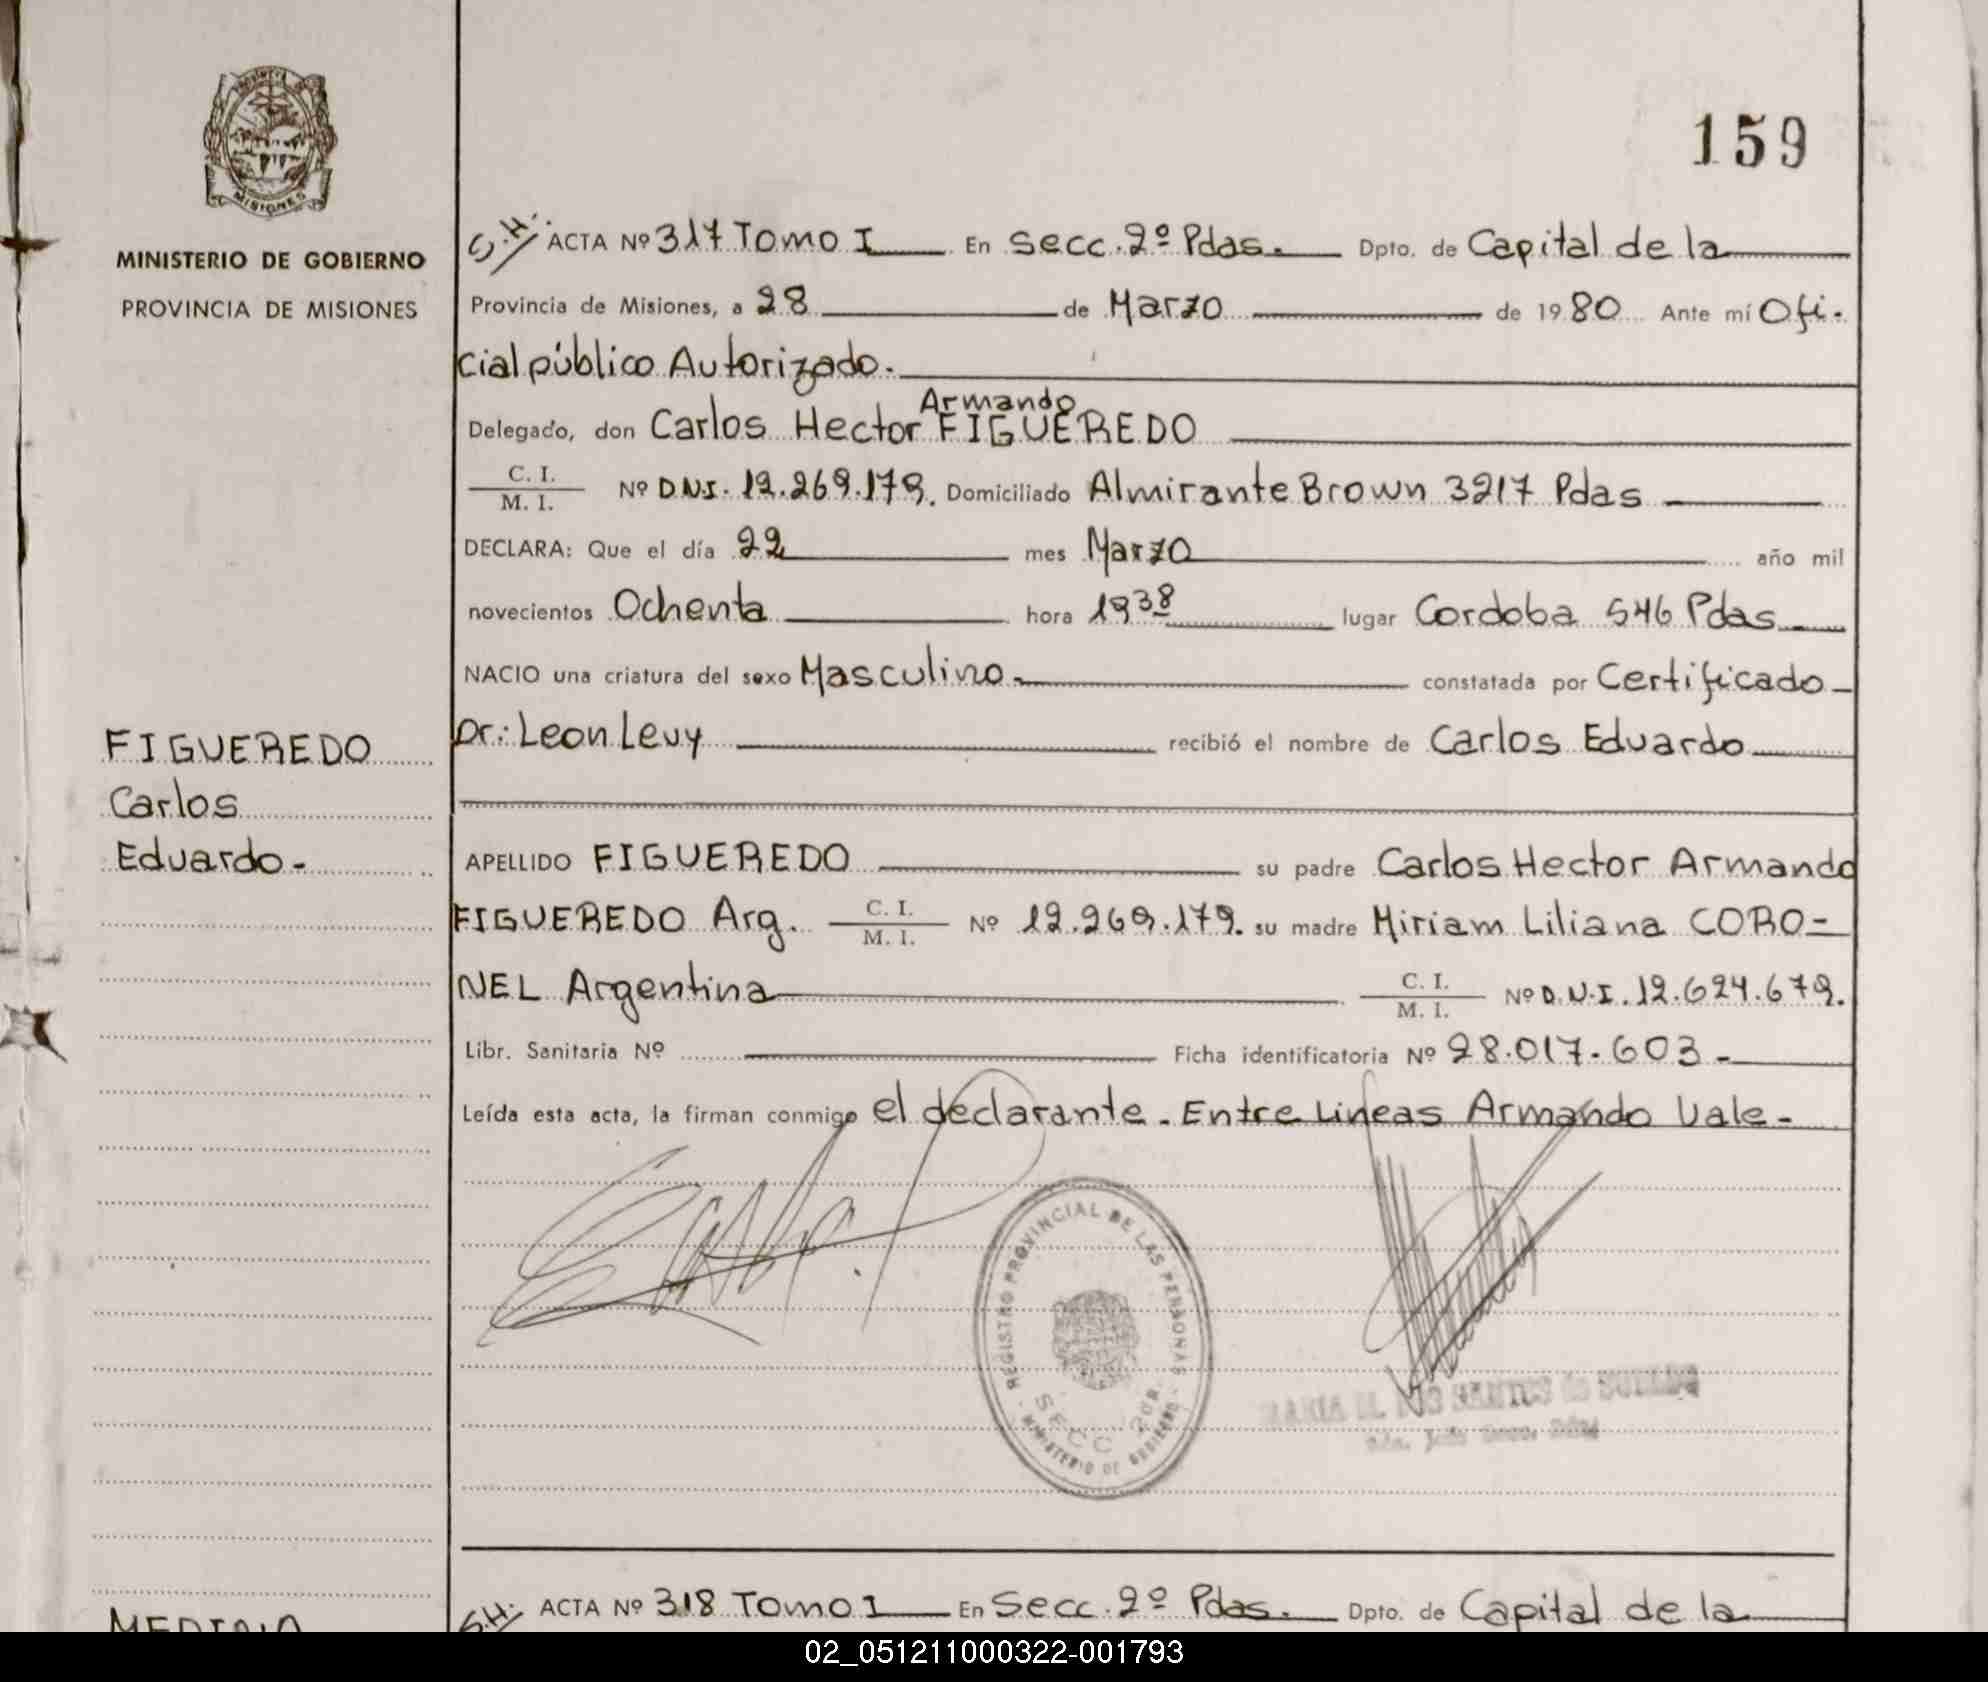 MISIONES
MINISTERIO DE GOBIERNO
PROVINCIA DE MISIONES
159
S.H. ACTA Nº 317 Tomo I En Secc. 2º Pdas. Dpto. de Capital de la
Provincia de Misiones, a 28 de Marzo de 1980 Ante mí Ofi-
cial público Autorizado.
Armando
Delegado, don Carlos Hector FIGUEREDO
C. I.
M. I. Nº D.N.I. 12.269.179. Domiciliado Almirante Brown 3217 Pdas
DECLARA: Que el día 22 mes Marzo año mil
novecientos Ochenta hora 19 38 lugar Cordoba 546 Pdas
NACIO una criatura del sexo Masculino. constatada por Certificado
Dr: Leon Levy recibió el nombre de Carlos Eduardo
FIGUEREDO
Carlos
Eduardo-
APELLIDO FIGUEREDO su padre Carlos Hector Armando
FIGUEREDO Arg. C. I. M. I. Nº 12.269.179. su madre Miriam Liliana CORO-
NEL Argentina C. I. M. I. Nº D.N.I. 12.624.679.
Libr. Sanitaria Nº Ficha identificatoria Nº 28.017.603-
Leída esta acta, la firman conmigo el declarante. Entre Lineas Armando Vale-
REGISTRO PROVINCIAL DE LAS PERSONAS
SECC. 2DA.
MINISTERIO DE GOBIERNO
MARIA DOS SANTOS de
S.H. ACTA Nº 318 Tomo I En Secc. 2º Pdas. Dpto. de Capital de la
02_051211000322-001793